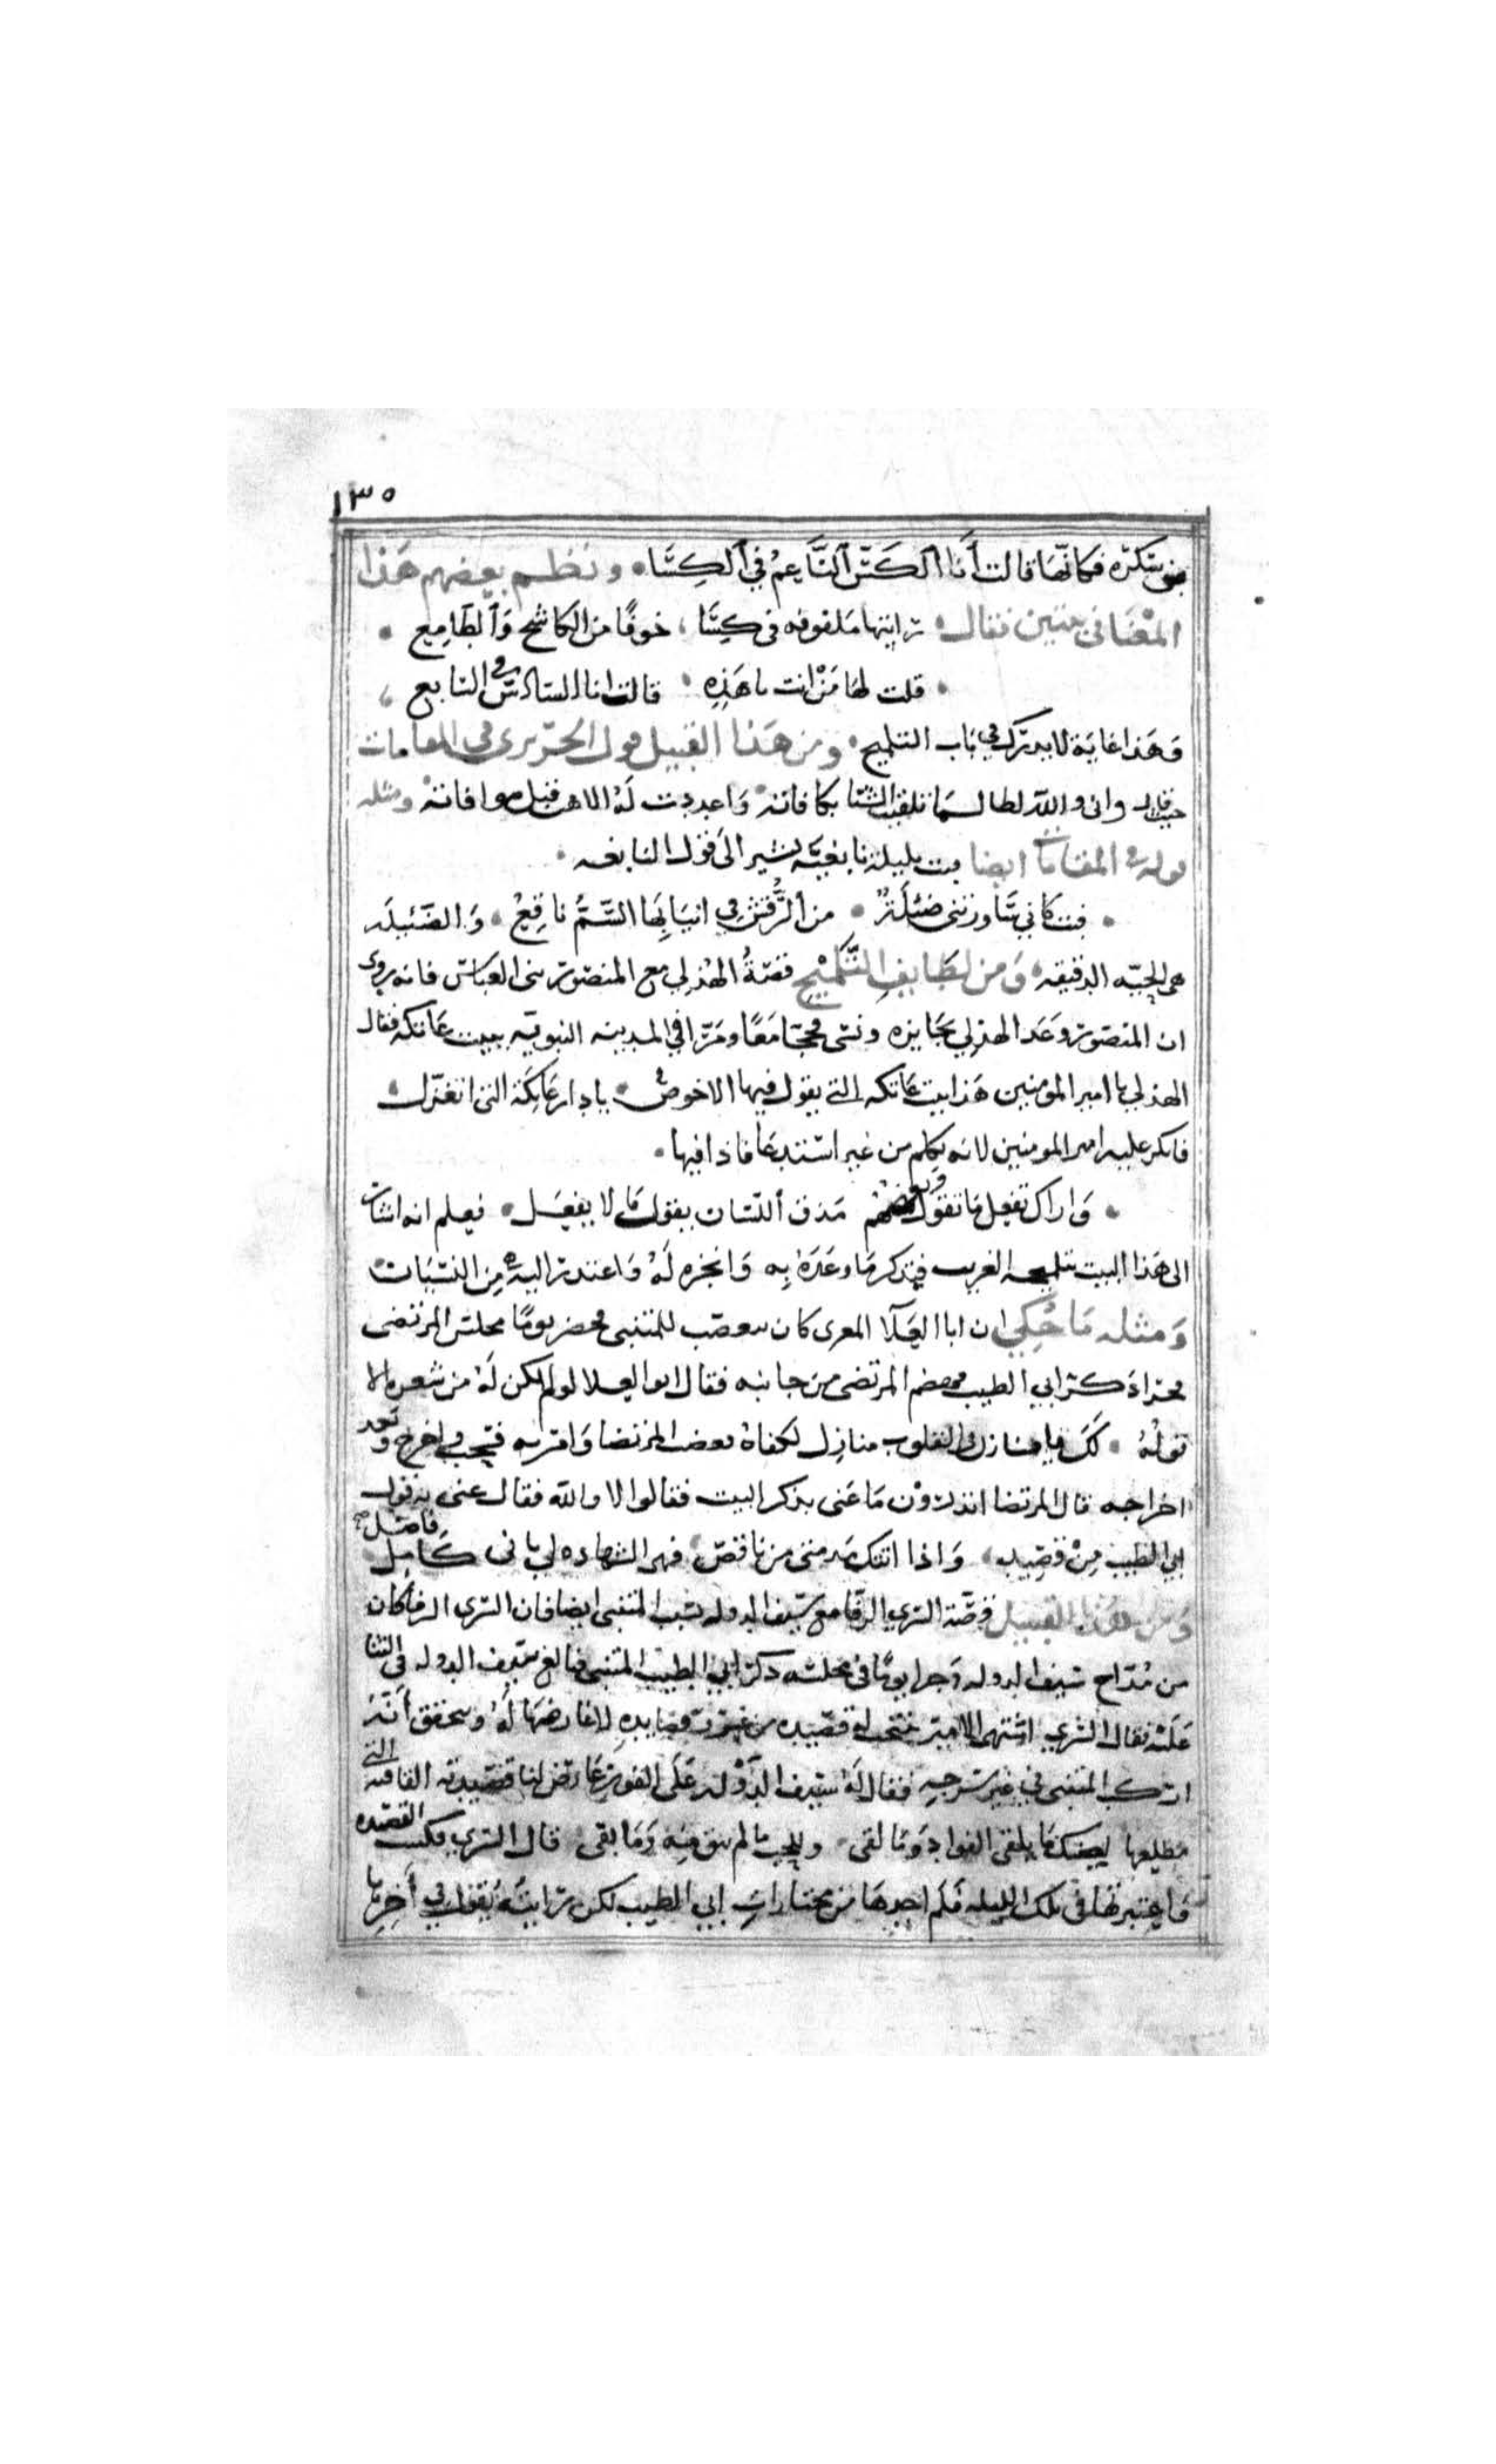 ١٣٥
بن سكره فكانها قالت أَنَا الكَسّ النَّاعِمْ في الكِسَا ونظم بعضهم هَذا
المعنَى في بيتين فقال رايتها ملفوفه في كِسَا خوفًا من الكاشح وَالطَامِع
قلت لها مَنْ انت يا هَذِهِ قالت انا السادس في السابع
وَهَذا غايَة لا يدرَك في بَاب التلميح ومن هَذا القبيل قول الحَريري في المقامات
حيث قال واني والله لطالما تلقيت الشتا بكافاته وَاعددت لَهُ الاهب قبل موافاته ومثله
قوله في المقامات ايضا فبت بليلة نابغيّه يشير الى قول النابغه
فبت كاني سَاورتني ضئلَةٌ من الرُّقش في انيَابِهَا السَّمُّ نَاقِعُ وَالضئيلَه
هي الحيّه الدقيقه وَمن لطَايفِ التَّلْمِيْحِ قصّةُ الهُذلي مع المنصور بني العبَاس فانه يروى
ان المنصور وَعَد الهذلي بجَايزه ونسى فحجّا مَعًا ومَرّا في المدينه النبويّه ببيت عَاتكه فقال
الهذلي يا امير المومنين هَذا بيت عَاتكه التي يقول فيها الاحوص يا دار عَاتِكَة التي اتغزّل
فانكر عليه امير المومنين لانه تكلم من غير استدعَا فاذا فيها
وَاراك تفعل مَا تقول وبعضهم مَذق اللسَان يقول مَا لا يفعَل فعلم انه اشَار
الى هَذا البيت بتلميحه الغريب فتذكر مَا وعَدَهُ بِه وَانجزه لَهُ وَاعتذر اليه مِن النسْيَان
وَمثله مَا حُكِي ان ابا العَلَآ المعرى كان يتعصّب للمتنبي فحضر يومًا مجلس المرتضى
فجرا ذكر ابي الطيب فهضم المرتضى من جانبه فقال ابو العلا لو لم يكن لَهُ من شعره الا
قولهُ لَكَ يا منازل في القلوب منازِل لكفاهُ فغضب المرتضا وَامر به فسحب واخرج وبعد
اخراجه قال المرتضا اتدرُوْن مَا عَنى بذكر البيت فقالوا لا والله فقال عنى به قول
ابي الطيب مِنْ قصِيده وَاذا اتتك مذمتي من ناقصٍ فهي الشهاده لي باني كَامِل فاضل
وَمن هَذا القبيل قصّة السّري الرفّا مع سيف الدوله بسبب المتنبي ايضا فان السّري الرفا كان
من مُدّاح سيف الدوله وَجرا يومًا في مجلسه ذكر ابي الطيب المتنبي فبالغ سيف الدوله في الثنا
عَليْه فقال السّري اشتهي الامير ينتخب لي قصيده من غُرر قصايدِه لاعارضهَا لَهُ ويتحقق أنّهُ
اركب المتنبي في غير سَرجِه فقال لَهُ سيف الدَّوْله عَلى الفور عَارض لنا قصيدته القافيّه التي
مطلعها لعينيك مَا يلقى الفواد وَمَا لقى وللحب ما لم يبق منه وَمَا بقى قال السّري فكتبت القصيده
وَاعتبرتها في تلك الليله فلَم اجدهَا من مختارات ابي الطيب لكن رَايتهُ يَقول في أخِرها